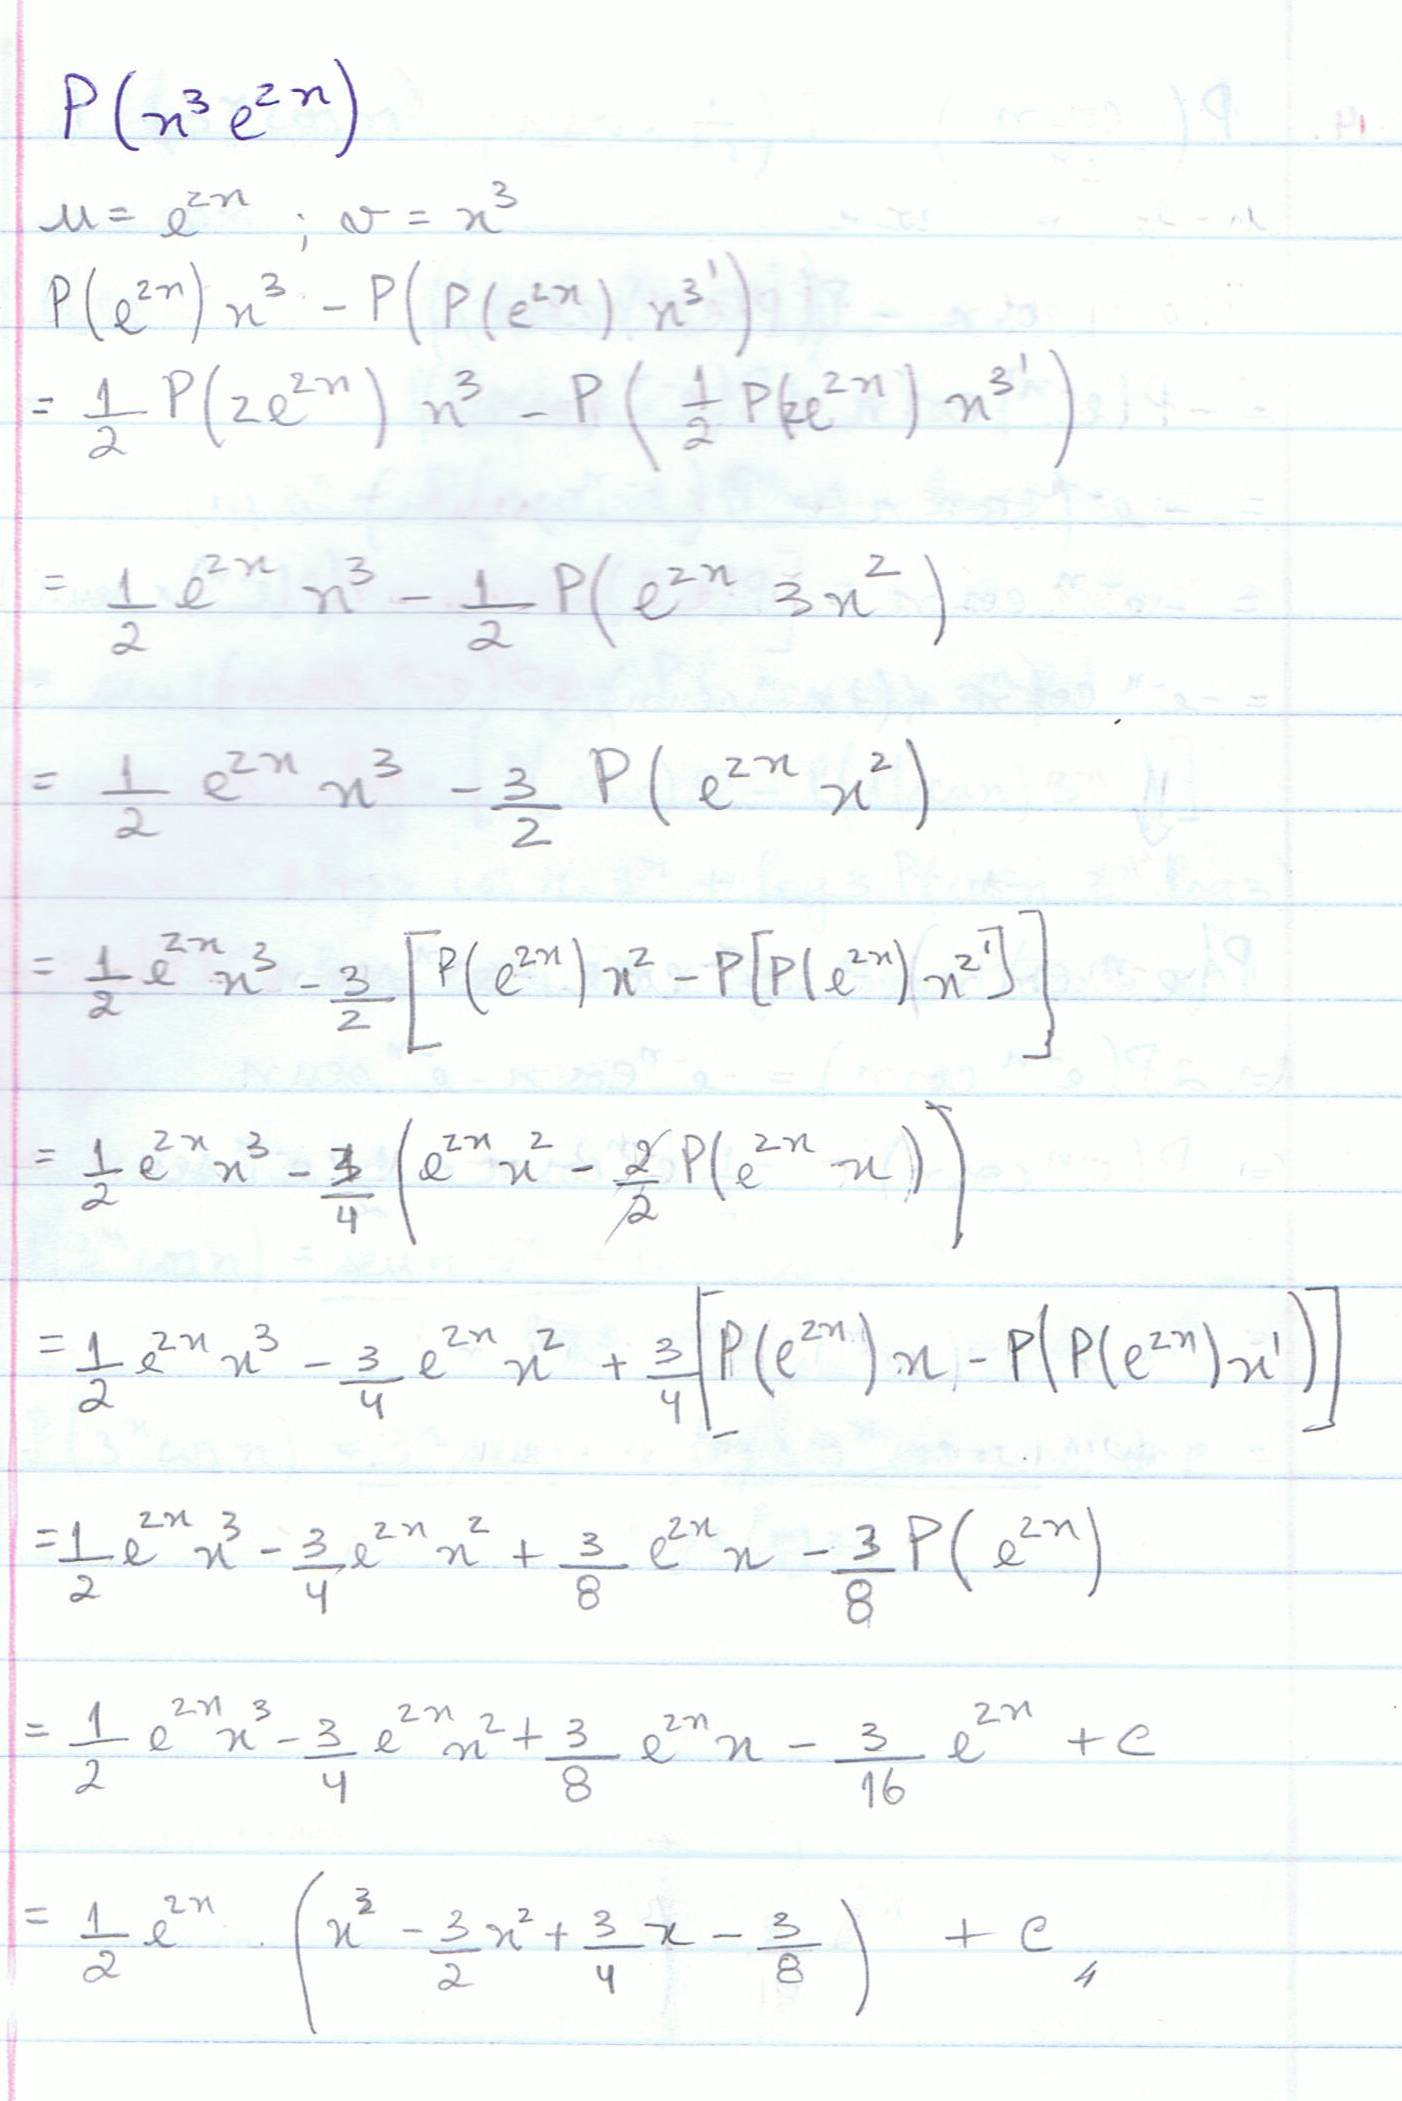 P(x³ e²ˣ)
u = e²ˣ ; v = x³
P(e²ˣ) x³ - P(P(e²ˣ) x³')
= 1/2 P(2e²ˣ) x³ - P(1/2 P(2e²ˣ) x³')
= 1/2 e²ˣ x³ - 1/2 P(e²ˣ 3x²)
= 1/2 e²ˣ x³ - 3/2 P(e²ˣ x²)
= 1/2 e²ˣ x³ - 3/2 [P(e²ˣ) x² - P[P(e²ˣ) x²']]
= 1/2 e²ˣ x³ - 3/4 (e²ˣ x² - 2/2 P(e²ˣ x))
= 1/2 e²ˣ x³ - 3/4 e²ˣ x² + 3/4 [P(e²ˣ) x - P(P(e²ˣ) x')]
= 1/2 e²ˣ x³ - 3/4 e²ˣ x² + 3/8 e²ˣ x - 3/8 P(e²ˣ)
= 1/2 e²ˣ x³ - 3/4 e²ˣ x² + 3/8 e²ˣ x - 3/16 e²ˣ + c
= 1/2 e²ˣ . (x³ - 3/2 x² + 3/4 x - 3/8) + c